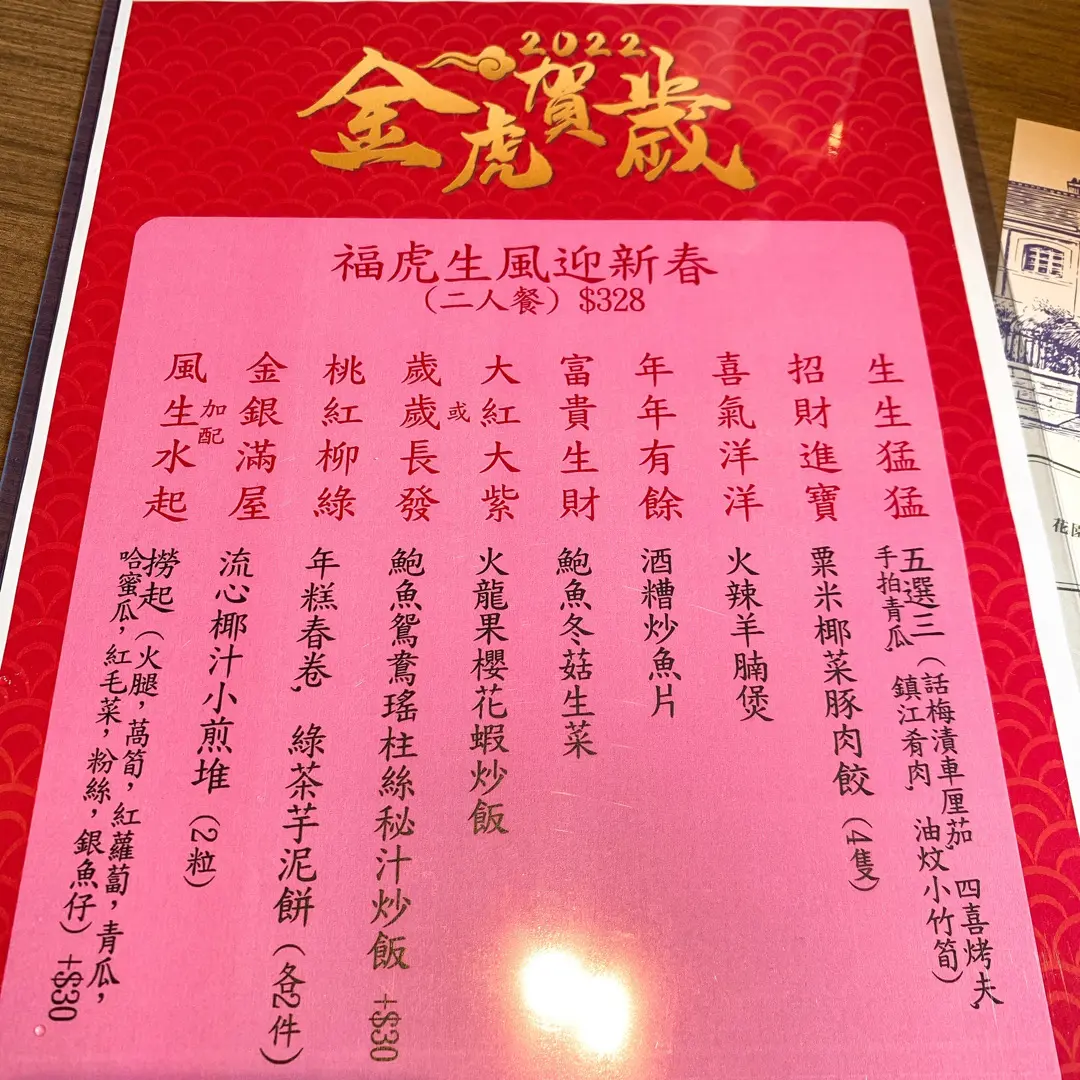 2022
金虎賀歲
福虎生風迎新春
(二人餐) $328
生生猛猛
五選三(話梅漬車厘茄、四喜烤夫、
手拍青瓜、鎮江肴肉、油炆小竹筍)
招財進寶
粟米椰菜豚肉餃 (4隻)
喜氣洋洋
火辣羊腩煲
年年有餘
酒糟炒魚片
富貴生財
鮑魚冬菇生菜
大紅大紫
火龍果櫻花蝦炒飯
或
歲歲長發
鮑魚鴛鴦瑤柱絲秘汁炒飯 +$30
桃紅柳綠
年糕春卷、綠茶芋泥餅 (各2件)
金銀滿屋
流心椰汁小煎堆 (2粒)
加配
風生水起
撈起(火腿,萵筍,紅蘿蔔,青瓜,
哈蜜瓜,紅毛菜,粉絲,銀魚仔) +$30